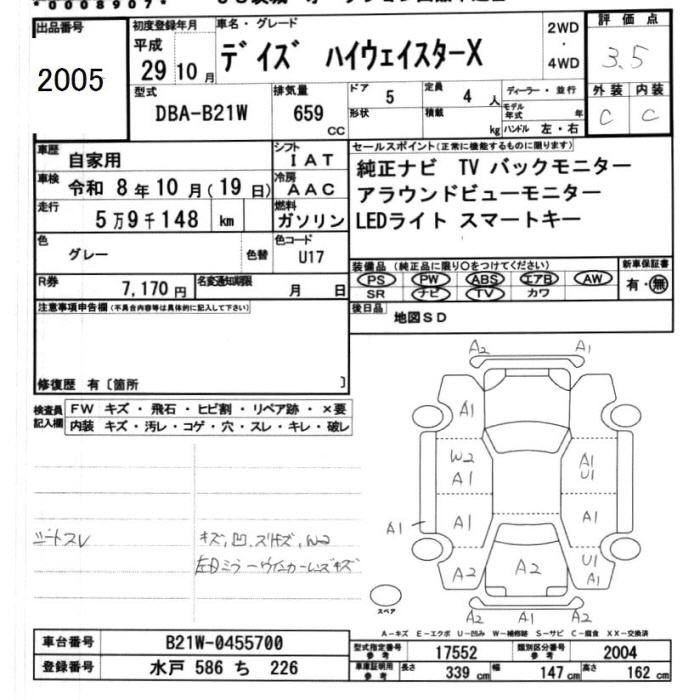 *0008907*
出品番号
2005
初度登録年月
平成
29 10 月
車名・グレード
デイズ ハイウェイスターX
2WD
・
4WD
評価点
3.5
外装 内装
C C
型式
DBA-B21W
排気量
659
cc
ドア 5
形状
定員 4 人
積載 kg
ディーラー・並行
モデル年式 年
ハンドル 左・右
車歴 自家用
シフト IAT
車検 令和 8年10月(19日)
冷房 AAC
走行 5万9千148 km
燃料 ガソリン
色 グレー 色替
色コード U17
R券 7,170円
名変通知期限 月 日
セールスポイント(正常に機能するものに限ります)
純正ナビ TV バックモニター
アラウンドビューモニター
LEDライト スマートキー
装備品(純正品に限り○をつけてください)
PS PW ABS エアB AW
SR ナビ TV カワ
新車保証書
有・無
後日品 地図SD
注意事項申告欄(不具合内容等は具体的に記入して下さい)
修復歴 有〔箇所 〕
検査員記入欄
FW キズ・飛石・ヒビ割・リペア跡・×要
内装 キズ・汚レ・コゲ・穴・スレ・キレ・破レ
シートスレ
キズ,凹,スリキズ,W2
左Dミラーウインカーレンズキズ
A2 A1
A1
W2
A1
A1
U1
A1
A1
A1
A2
A2
U1
A1
A2 A1 A2
スペア
A-キズ E-エクボ U-凹み W-補修跡 S-サビ C-腐食 XX-交換済
車台番号 B21W-0455700
登録番号 水戸 586 ち 226
型式指定番号 参考 17552
類別区分番号 参考 2004
車庫証明用 参考 長さ 339 cm 幅 147 cm 高さ 162 cm